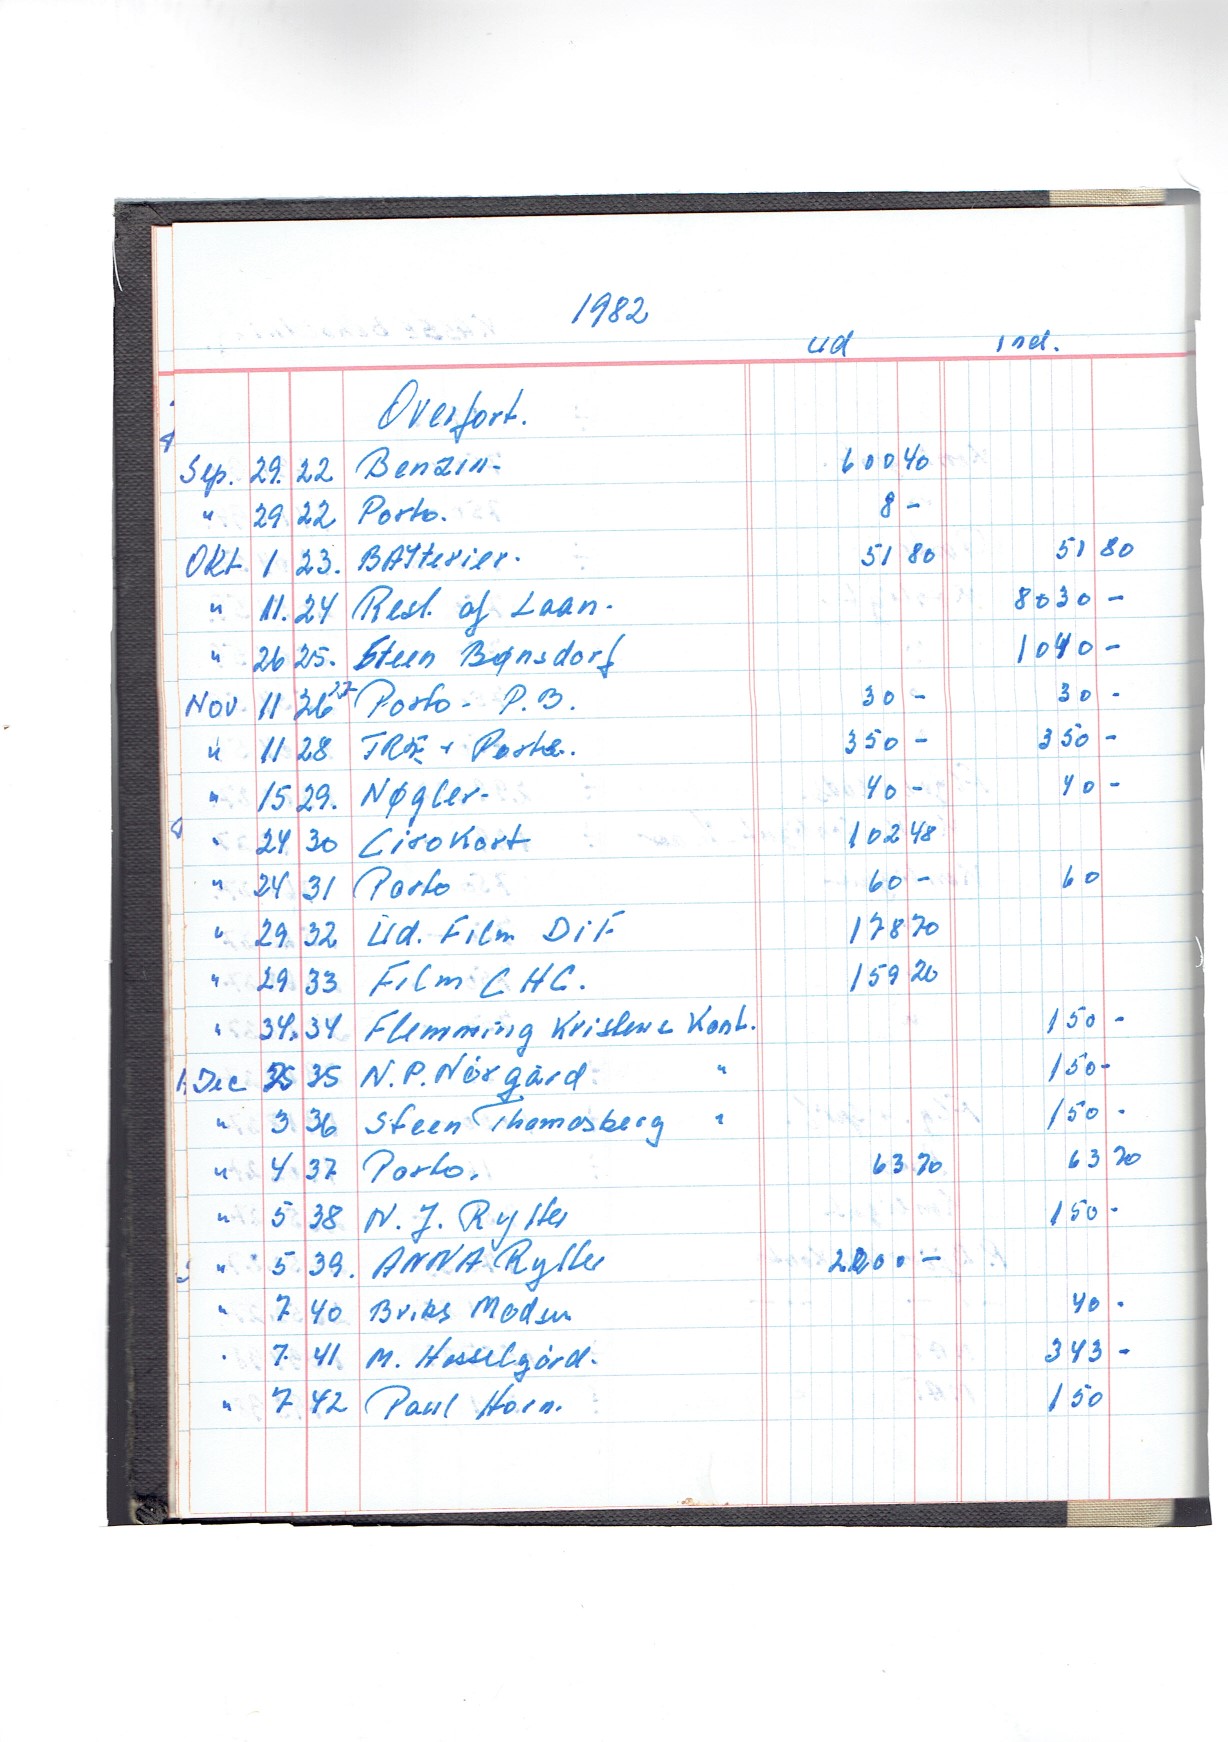 1982
ud ind.
Overfort.
Sep. 29. 22 Benzin- 600 40
" 29 22 Porto. 8 -
Okt 1 23. BATterier. 51 80 51 80
" 11. 24 Rest. af Laan. 8030 -
" 26 25. Steen Bønsdorf 1040 -
Nov 11 26 27 Porto - P.B. 30 - 30 -
" 11 28 + Porto. 350 - 350 -
" 15 29. Nøgler- 40 - 40 -
" 24 30 Girokort 102 48
" 24 31 Porto 60 - 60
" 29 32 Ud. Film DiF 178 70
" 29 33 Film CHC. 159 20
" 34 Flemming Kristens Kont. 150 -
Dec 35 N.P. Nörgård " 150 -
" 3 36 Steen Thomasberg " 150 -
" 4 37 Porto. 63 70 63 70
" 5 38 N. J. Rytter 150 -
" 5 39. ANNA Rytter 2200 -
" 7 40 Briks Madsen 40 -
" 7. 41 M. Hasselgård. 343 -
" 7 42 Paul Horn. 150